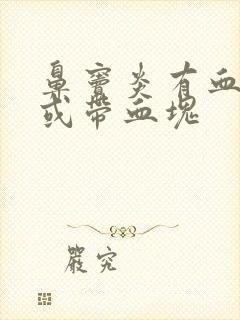 鼻窦炎有血
或带血块
严究